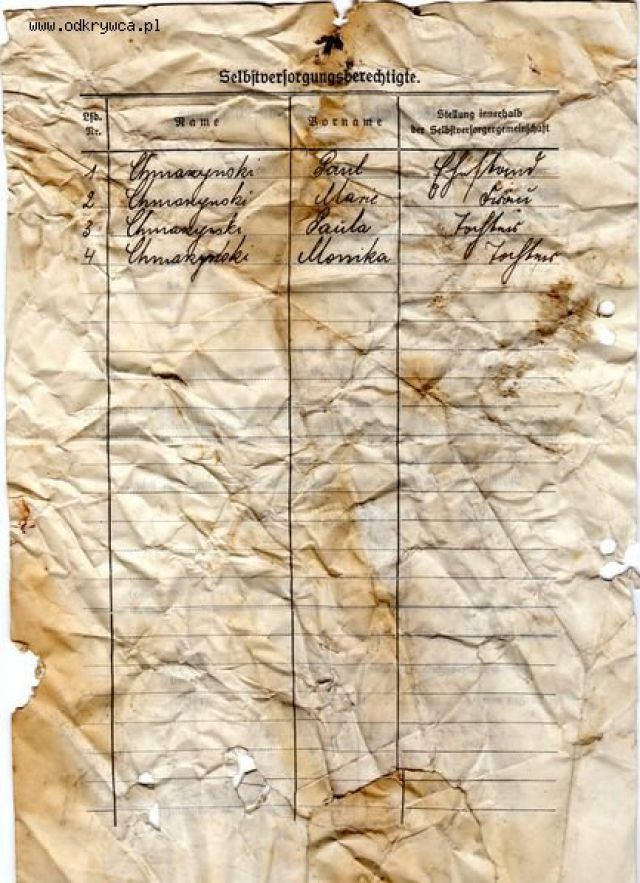 www.odkrywca.pl
Selbstversorgungsberechtigte.
Lfd. Nr. Name Vorname Stellung innerhalb der Selbstversorgergemeinschaft
1 Paul
2 Marie Frau
3 Paula Tochter
4 Monika Tochter